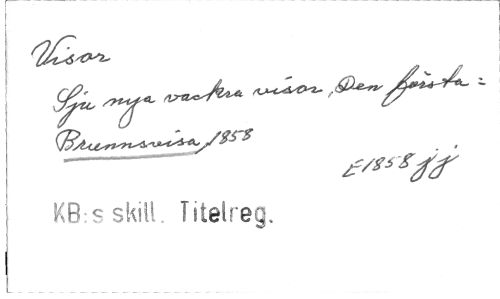 Visor
Sju nya vackra visor, Den första =
Brunnsvisa, 1858
E1858 jj
KB:s skill. Titelreg.